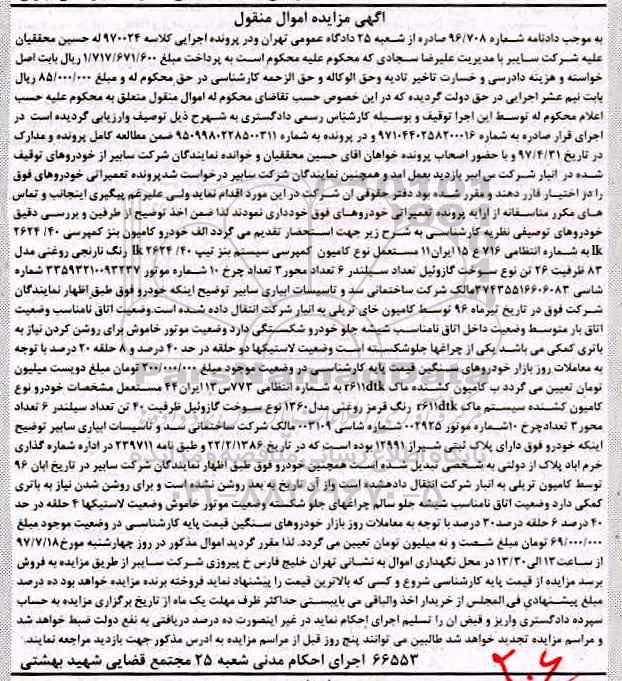 آگهی مزایده اموال منقول
به موجب دادنامه شماره ۹۶/۷۰۸ صادره از شعبه ۲۵ دادگاه عمومی تهران ودر پرونده اجرایی کلاسه ۹۷۰۰۲۴ له حسین محققیان
علیه شرکت سابیر با مدیریت علیرضا سجادی که محکوم علیه محکوم است به پرداخت مبلغ ۱/۷۱۷/۶۷۱/۶۰۰ ریال بابت اصل
خواسته و هزینه دادرسی و خسارت تاخیر تادیه وحق الوکاله و حق الزحمه کارشناسی در حق محکوم له و مبلغ ۸۵/۰۰۰/۰۰۰ ریال
بابت نیم عشر اجرایی در حق دولت گردیده که در این خصوص حسب تقاضای محکوم له اموال منقول متعلق به محکوم علیه حسب
اعلام محکوم له توسط این اجرا توقیف و بوسیله کارشناس رسمی دادگستری به شهرح ذیل توصیف وارزیابی گردیده است در
اجرای قرار صادره به شماره ۹۷۱۰۴۴۰۲۵۸۲۰۰۰۱۶ و در پرونده به شماره ۹۵۰۹۹۸۰۲۲۸۵۰۰۳۱۱ ضمن مطالعه کامل پرونده و مدارک
در تاریخ ۹۷/۴/۳۱ و با حضور اصحاب پرونده خواهان اقای حسین محققیان و خوانده نمایندگان شرکت سابیر از خودروهای توقیف
شده در انبار شرکت س ابیر بازدید بعمل امد و همچنین نمایندگان شرکت سابیر درخواست شدپرونده تعمیراتی خودروهای فوق
را در اختیار قارر دهند و مقرر شده بود دفتر حقوقی ان شرکت در این مورد اقدام نماید ولی علیرغم پیگیری اینجانب و تماس
های مکرر متاسفانه از ارایه پرونده تعمیراتی خودروهای فوق خودداری نمودند لذا ضمن اخذ توضیح از طرفین و بررسی دقیق
خودروهای توصیفی نظریه کارشناسی به شرح زیر جهت استحضار تقدیم می گردد الف خودرو کامیون بنز کمپرسی ۴۰/ ۲۶۲۴
lk به شماره انتظامی ۷۱۶ ع ۱۵ ایران۱۱ مستعمل نوع کامیون کمپرسی سیستم بنز تیپ ۴۰/ ۲۶۲۴ lk رنگ نارنجی روغنی مدل
۸۳ ظرفیت ۲۶ تن نوع سوخت گازوئیل تعداد سیلندر ۶ تعداد محور ۳ تعداد چرخ ۱۰ شماره موتور ۳۳۵۹۳۲۱۰۰۹۳۲۳۷ شماره
شاسی ۳۷۴۳۵۵۱۶۶۰۶۰۸۳مالک شرکت ساختمانی سد و تاسیسات ابیاری سابیر توضیح اینکه خودرو فوق طبق اظهار نمایندگان
شرکت فوق در تاریخ تیرماه ۹۶ توسط کامیون خای تریلی به انبار شرکت انتقال داده شده است.وضعیت اتاق نامناسب وضعیت
اتاق بار متوسط وضعیت داخل اتاق نامناسب شیشه جلو خودرو شکستگی دارد وضعیت موتور خاموش برای روشن کردن نیاز به
باتری کمکی می باشد یکی از چراغها جلوشکسته است وضعیت لاستیکها دو حلقه در حد ۴۰ درصد و ۸ حلقه ۲۰ درصد با توجه
به معاملات روز بازار خودروهای سنگین قیمت پایه کارشناسی در وضعیت موجود مبلغ ۲۰۰/۰۰۰/۰۰۰ تومان مبلغ دویست میلیون
تومان تعیین می گردد ب کامیون کشنده ماک r۶۱۱dtk به شماره انتظامی ۷۷۳س۱۳ ایران۴۴ مستعمل مشخصات خودرو نوع
کامیون کشنده سیستم ماک r۶۱۱dtk رنگ قرمز روغنی مدل۱۳۶۰ نوع سوخت گازوئیل ظرفیت ۴۰ تن تعداد سیلندر ۶ تعداد
محور ۳ تعدادچرخ ۱۰شماره موتور ۰۰۲۹۲۵ شماره شاسی ۰۰۳۱۰۹ مالک شرکت ساختمانی سد و تاسیسات ابیاری سابیر توضیح
اینکه خودرو فوق دارای پلاک ثبتی شیراز ۱۲۹۹۱ بوده است که در تاریخ ۲۲/۲/۱۳۸۶ و طبق نامه ۲۳۹۷۱۱ در اداره شماره گذاری
خرم اباد پلاک از دولتی به شخصی تبدیل شده است همچنین خودرو فوق طبق اظهار نمایندگان شرکت سابیر در تاریخ ابان ۹۶
توسط کامیون تریلی به انبار شرکت انتقال دادهشده است واز آن تاریخ به بعد روشن نشده است و برای روشن شدن نیاز به باتری
کمکی دارد وضعیت اتاق نامناسب شیشه جلو سالم چراغهای جلو شکسته وضعیت موتور خاموش وضعیت لاستیکها ۴ حلقه در حد
۴۰ درصد ۶ حلقه درصد۳۰ درصد با توجه به معاملات روز بازار خودروهای سنگین قیمت پایه کارشناسی در وضعیت موجود مبلغ
۶۹/۰۰۰/۰۰۰ تومان مبلغ شصت و نه میلیون تومان تعیین می گردد. لذا مقرر گردید اموال مذکور در روز چهارشنبه مورخ۹۷/۷/۱۸
از ساعت۱۳ الی ۱۳/۳۰ در محل نگهداری اموال به نشانی تهران خلیج فارس خ پیروزی شرکت سابیر از طریق مزایده به فروش
برسد مزایده از قیمت پایه کارشناسی شروع و کسی که بالاترین قیمت را پیشنهاد نماید فروخته برنده مزایده خواهد بود ده درصد
مبلغ پیشنهادی فی المجلس از خریدار اخذ والباقی می بایستی حداکثر ظرف مهلت یک ماه از تاریخ برگزاری مزایده به حساب
سپرده دادگستری واریز و قبض ان را تسلیم اجرای احکام نماید در غیر اینصورت ده درصد دریافتی به نفع دولت ضبط خواهد شد
و مراسم مزایده تجدید خواهد شد طالبین می توانند پنج روز قبل از مراسم مزایده به ادرس مذکور جهت بازدید مراجعه نمایند.
۶۶۵۵۳ اجرای احکام مدنی شعبه ۲۵ مجتمع قضایی شهید بهشتی
۲۰۶